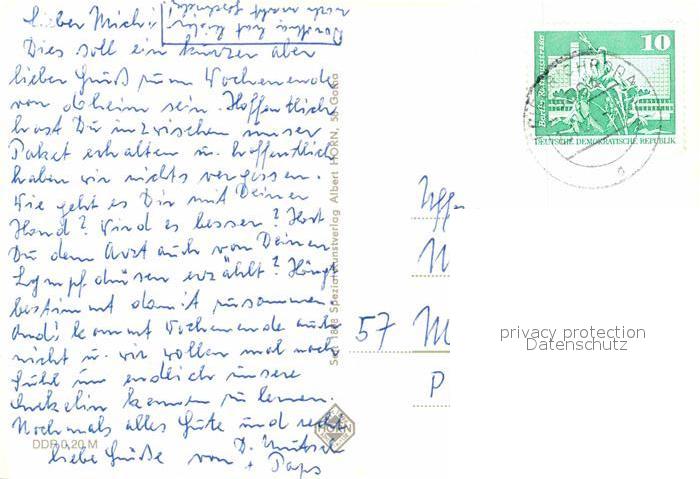 Lieber Michi!
Dies soll ein kurzer aber
lieber Gruß zum Wochenende
von daheim sein. Hoffentlich
hast Du inzwischen unser
Paket erhalten u. hoffentlich
haben wir nichts vergessen.
Wie geht es Dir mit Deiner
Hand? Wird es besser? Hast
Du dem Arzt auch von Deinen
Lymphdrüsen erzählt? Hängt
bestimmt damit zusammen.
Andi kommt Wochenende auch
nicht u. wir wollen mal nach
Suhl um endlich unsere
Enkelin kennen zu lernen.
Nochmals alles Gute und recht
liebe Grüße von D. Mutsch
+ Paps
DDR 0,20 M
Seit 1888 Spezial-Kunstverlag Albert HORN, 58 Gotha
HORN
10
Berlin, Rathausstraße
DEUTSCHE DEMOKRATISCHE REPUBLIK
Uffz
57 M
P
privacy protection
Datenschutz